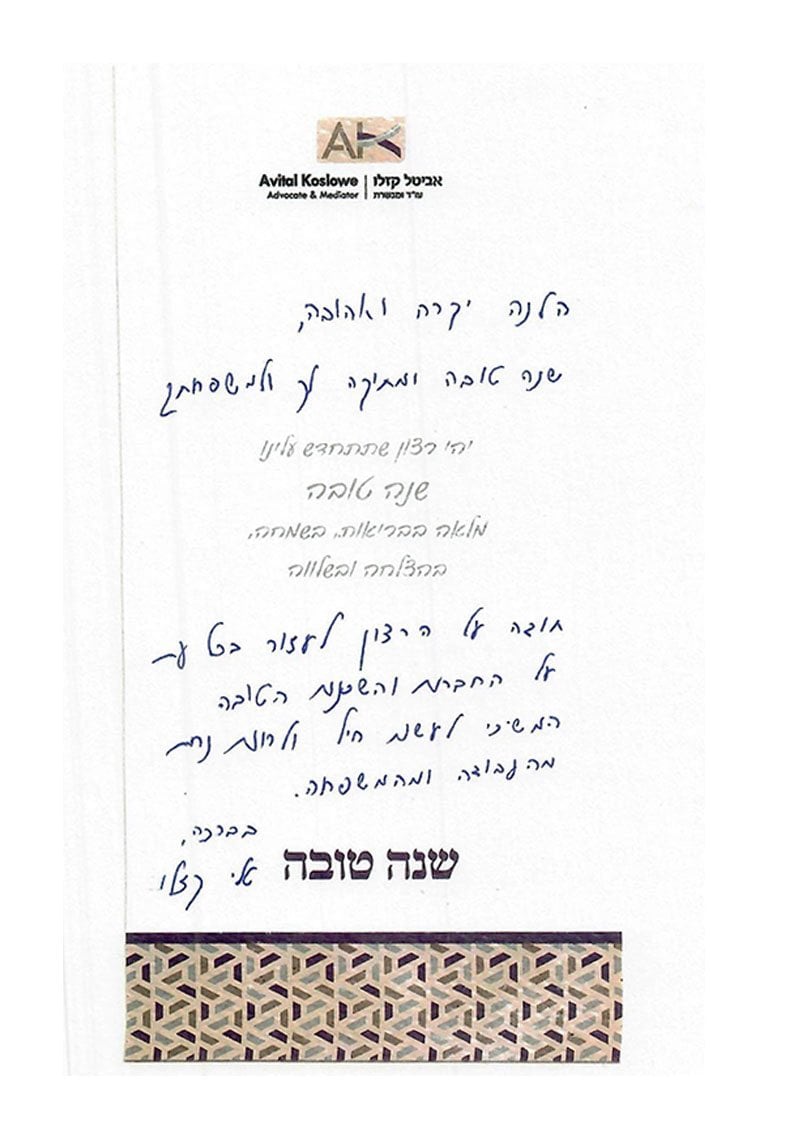 AK
Avital Koslowe | אביטל קזלו
Advocate & Mediator | עו"ד ומגשרת
הלנה יקרה ואהובה,
שנה טובה ומתיקה לך ולמשפחתך
יהי רצון שתתחדש עלינו
שנה טובה
מלאה בבריאות, בשמחה,
בהצלחה ובשלווה
תודה על הרצון לעזור בכל עת
על החברות והשכנות הטובה
המשיכי לעשות חיל ולרוות נחת
מהעבודה ומהמשפחה.
בברכה,
טלי קזלו
שנה טובה